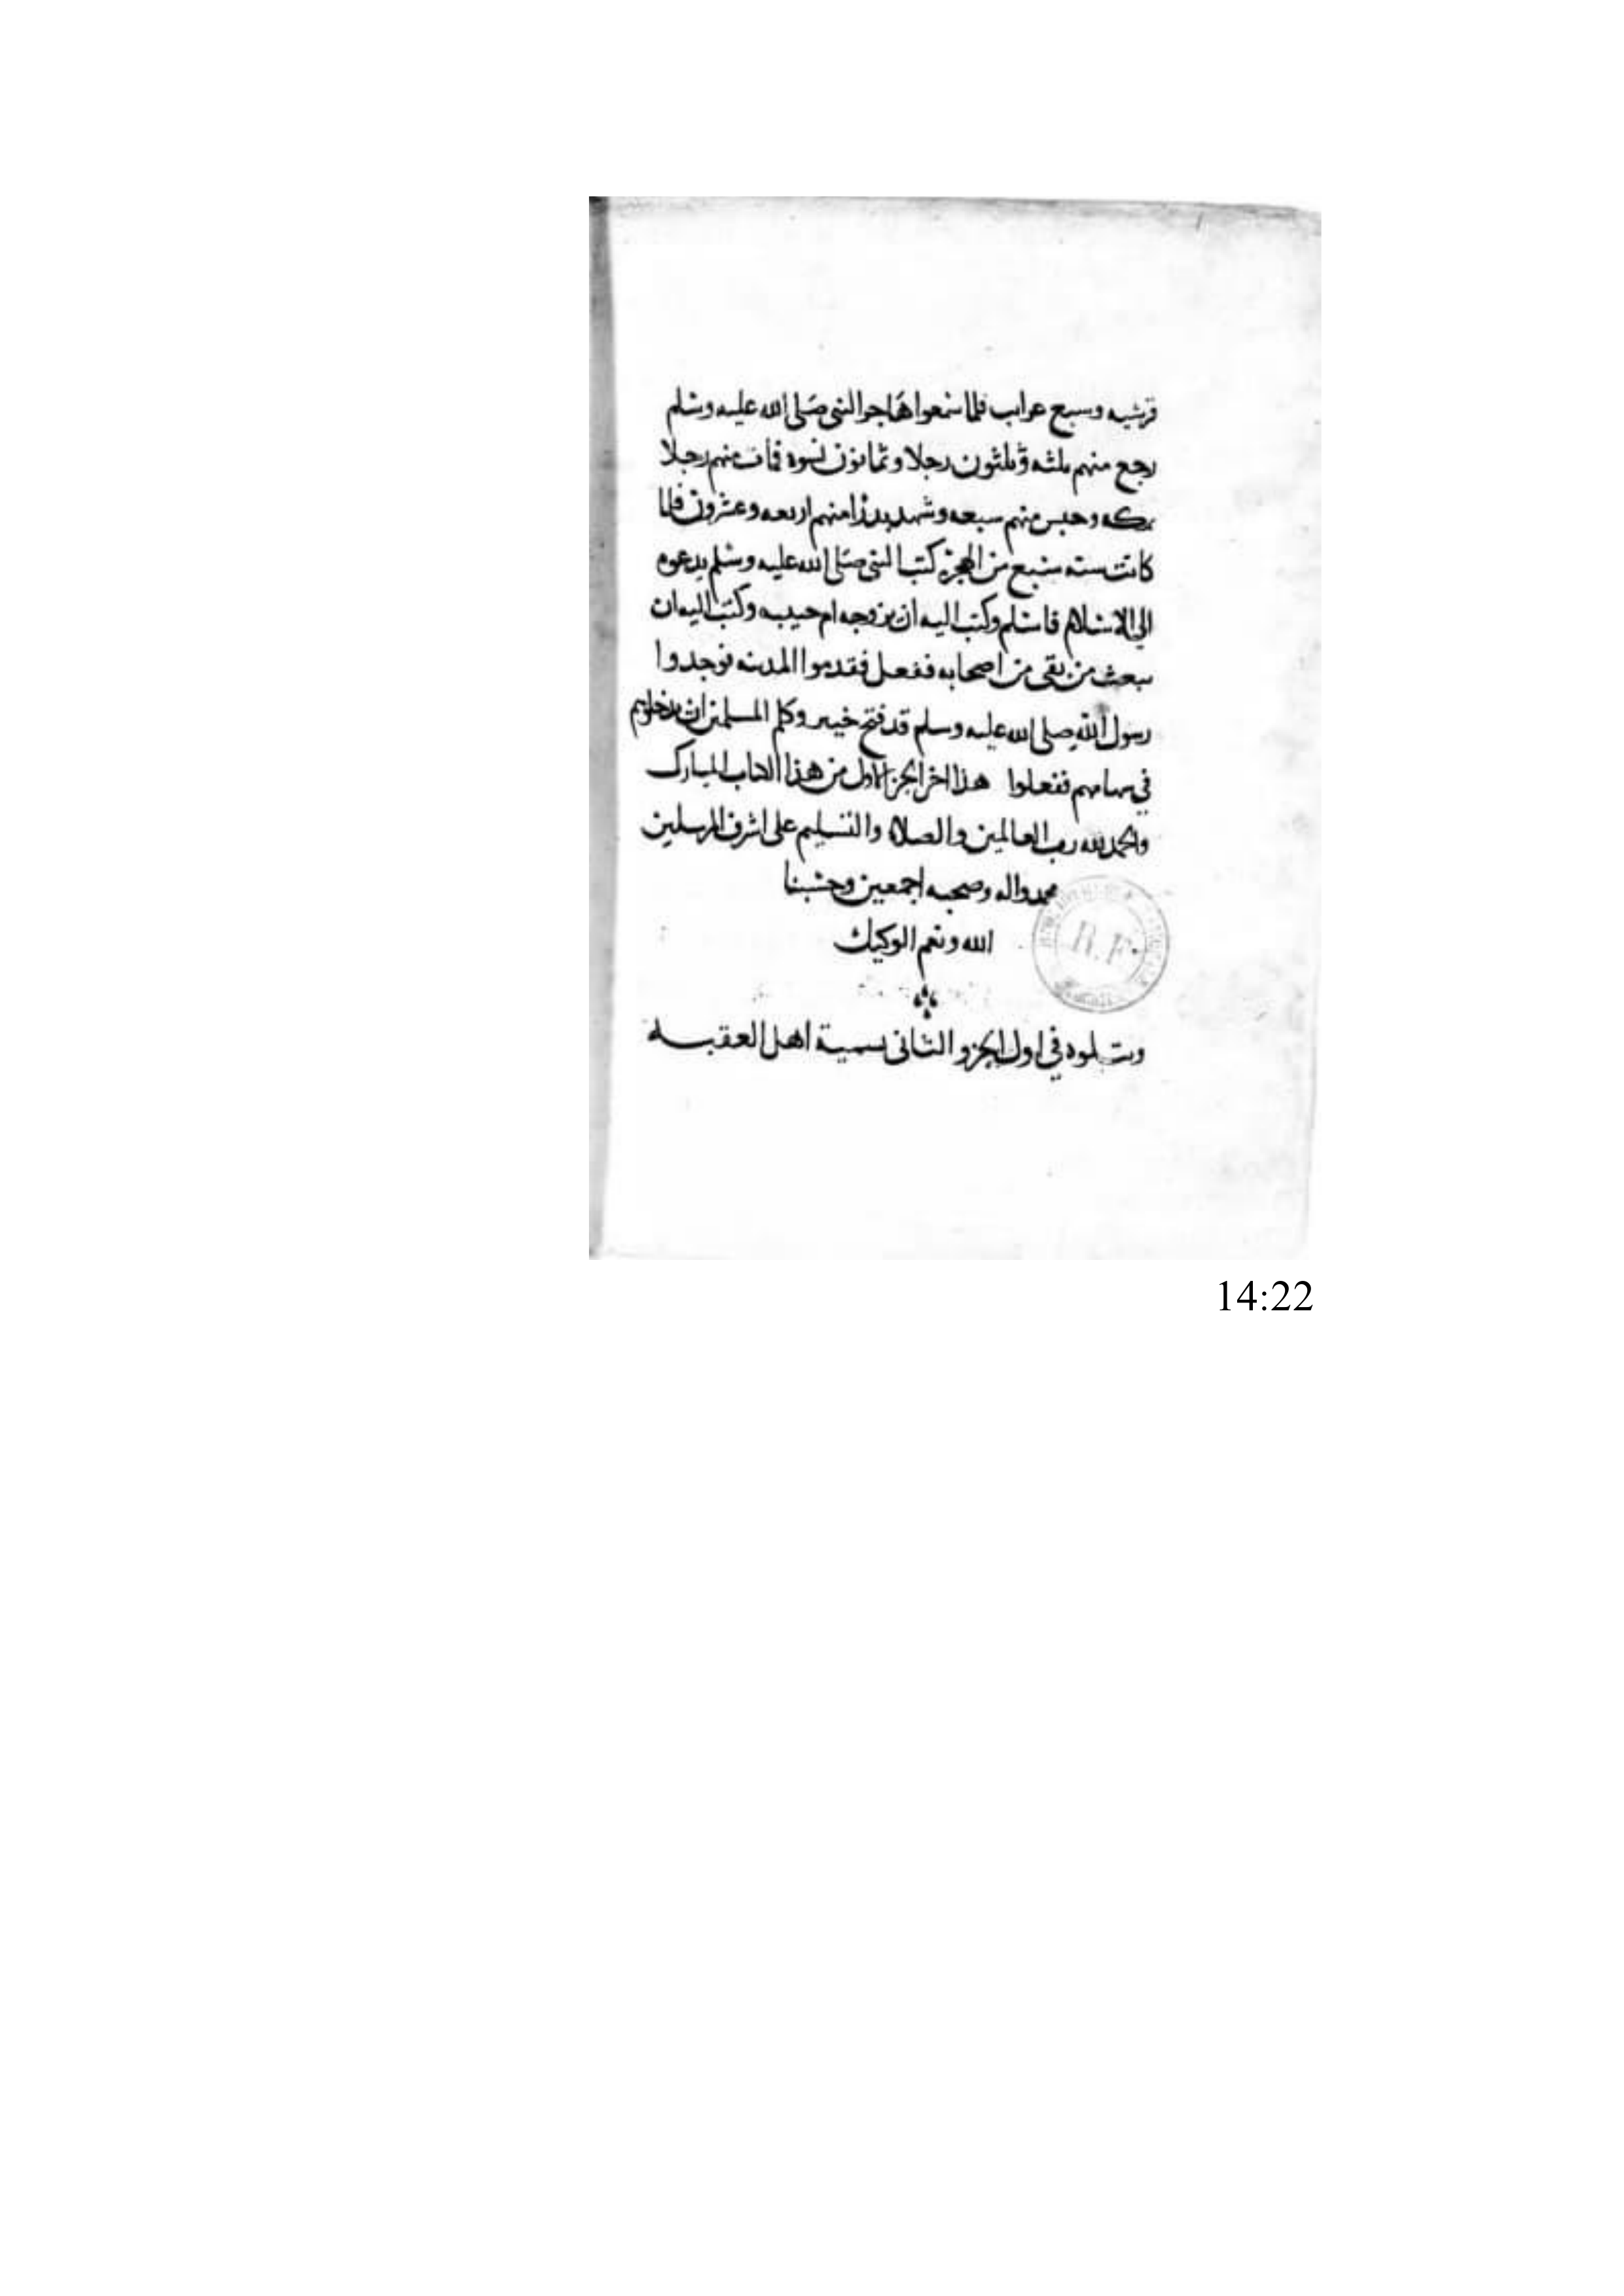 قرشيه وسبع عراب فلما سمعوا هاجر النبي صلى الله عليه وسلم
رجع منهم ثلثه وثلثون رجلا وثمانون نسوه فمات منهم رجلا
بمكه وحبس منهم سبعه وشهد بدرا منهم اربعه وعشرون فلما
كانت سنه سبع من الهجره كتب النبي صلى الله عليه وسلم يدعوه
الى الاسلام فاسلم وكتب اليه ان يزوجه ام حبيبه وكتب اليه ان
يبعث من بقى من اصحابه ففعل فقدموا المدينه فوجدوا
رسول الله صلى الله عليه وسلم قد فتح خيبر وكلم المسلمين ان يدخلوهم
في سهامهم ففعلوا هذا اخر الجز الاول من هذا الكتاب المبارك
والحمد لله رب العالمين والصلاه والتسليم على اشرف المرسلين
محمد واله وصحبه اجمعين وحسبنا
الله ونعم الوكيل
R.F.
وتتلوه في اول الجزو الثاني تسمية اهل العقبه
14:22